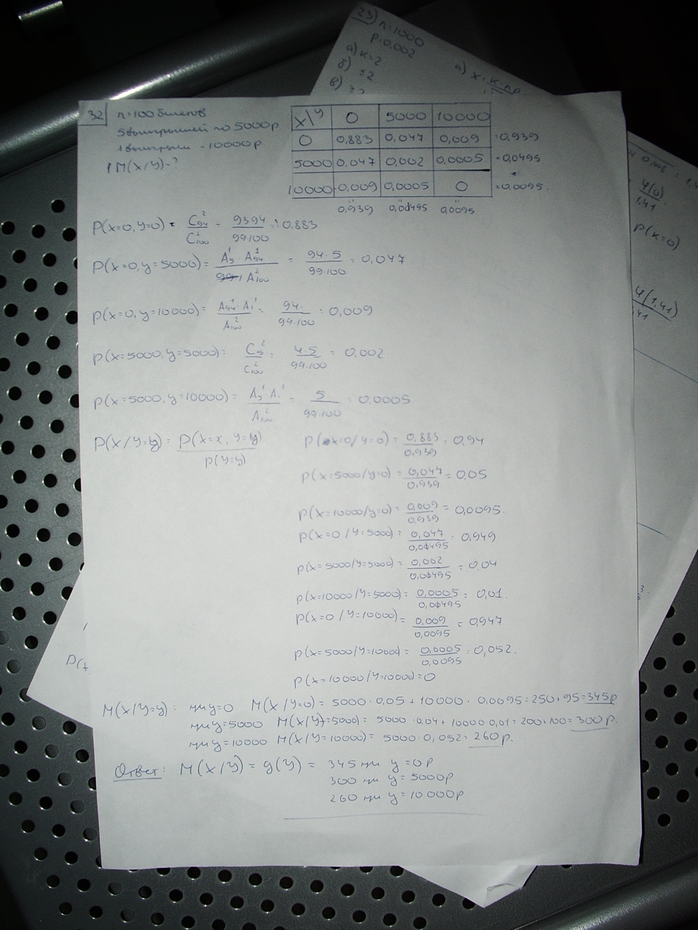 23) n=1000
p=0.002
а) k=2
32 n=100 билетов
5 выигрышей по 5000р
1 выигрыш - 10000р
M(X/Y)-?
X\Y 0 5000 10000
0 0,883 0,047 0,009 =0,939
5000 0,047 0,002 0,0005 =0,0495
10000 0,009 0,0005 0 =0,0095
0,939 0,0495 0,0095
P(x=0,y=0) = C²₉₄/C²₁₀₀ = 93·94/99·100 = 0.883
P(x=0,y=5000) = A¹₅·A¹₉₄/A²₁₀₀ = 94·5/99·100 = 0,047
P(x=0,y=10000) = A¹₉₄·A₁¹/A²₁₀₀ = 94/99·100 = 0,009
P(x=5000,y=5000) = C²₅/C²₁₀₀ = 4·5/99·100 = 0,002
P(x=5000,y=10000) = A₅¹·A₁¹/A²₁₀₀ = 5/99·100 = 0.0005
P(X/Y=y) = P(X=x, Y=y)/P(Y=y)
P(x=0/y=0) = 0,883/0,939 = 0,94
P(x=5000/y=0) = 0,047/0,939 = 0,05
P(x=10000/y=0) = 0,009/0,939 = 0,0095
P(x=0/Y=5000) = 0,047/0,0495 = 0,949
P(x=5000/y=5000) = 0,002/0,0495 = 0,04
P(x=10000/Y=5000) = 0,0005/0,0495 = 0,01
P(x=0/Y=10000) = 0,009/0,0095 = 0,947
P(x=5000/Y=10000) = 0,0005/0,0095 = 0,052
P(x=10000/Y=10000)=0
M(X/Y=y): при y=0 M(X/Y=0) = 5000·0,05+10000·0,0095=250+95=345р
при y=5000 M(X/Y=5000) = 5000·0.04+10000·0,01=200+100=300р.
при y=10000 M(X/Y=10000) = 5000·0,052=260р.
Ответ: M(X/Y) = g(Y) = 345 при y=0р
300 при y=5000р
260 при y=10000р